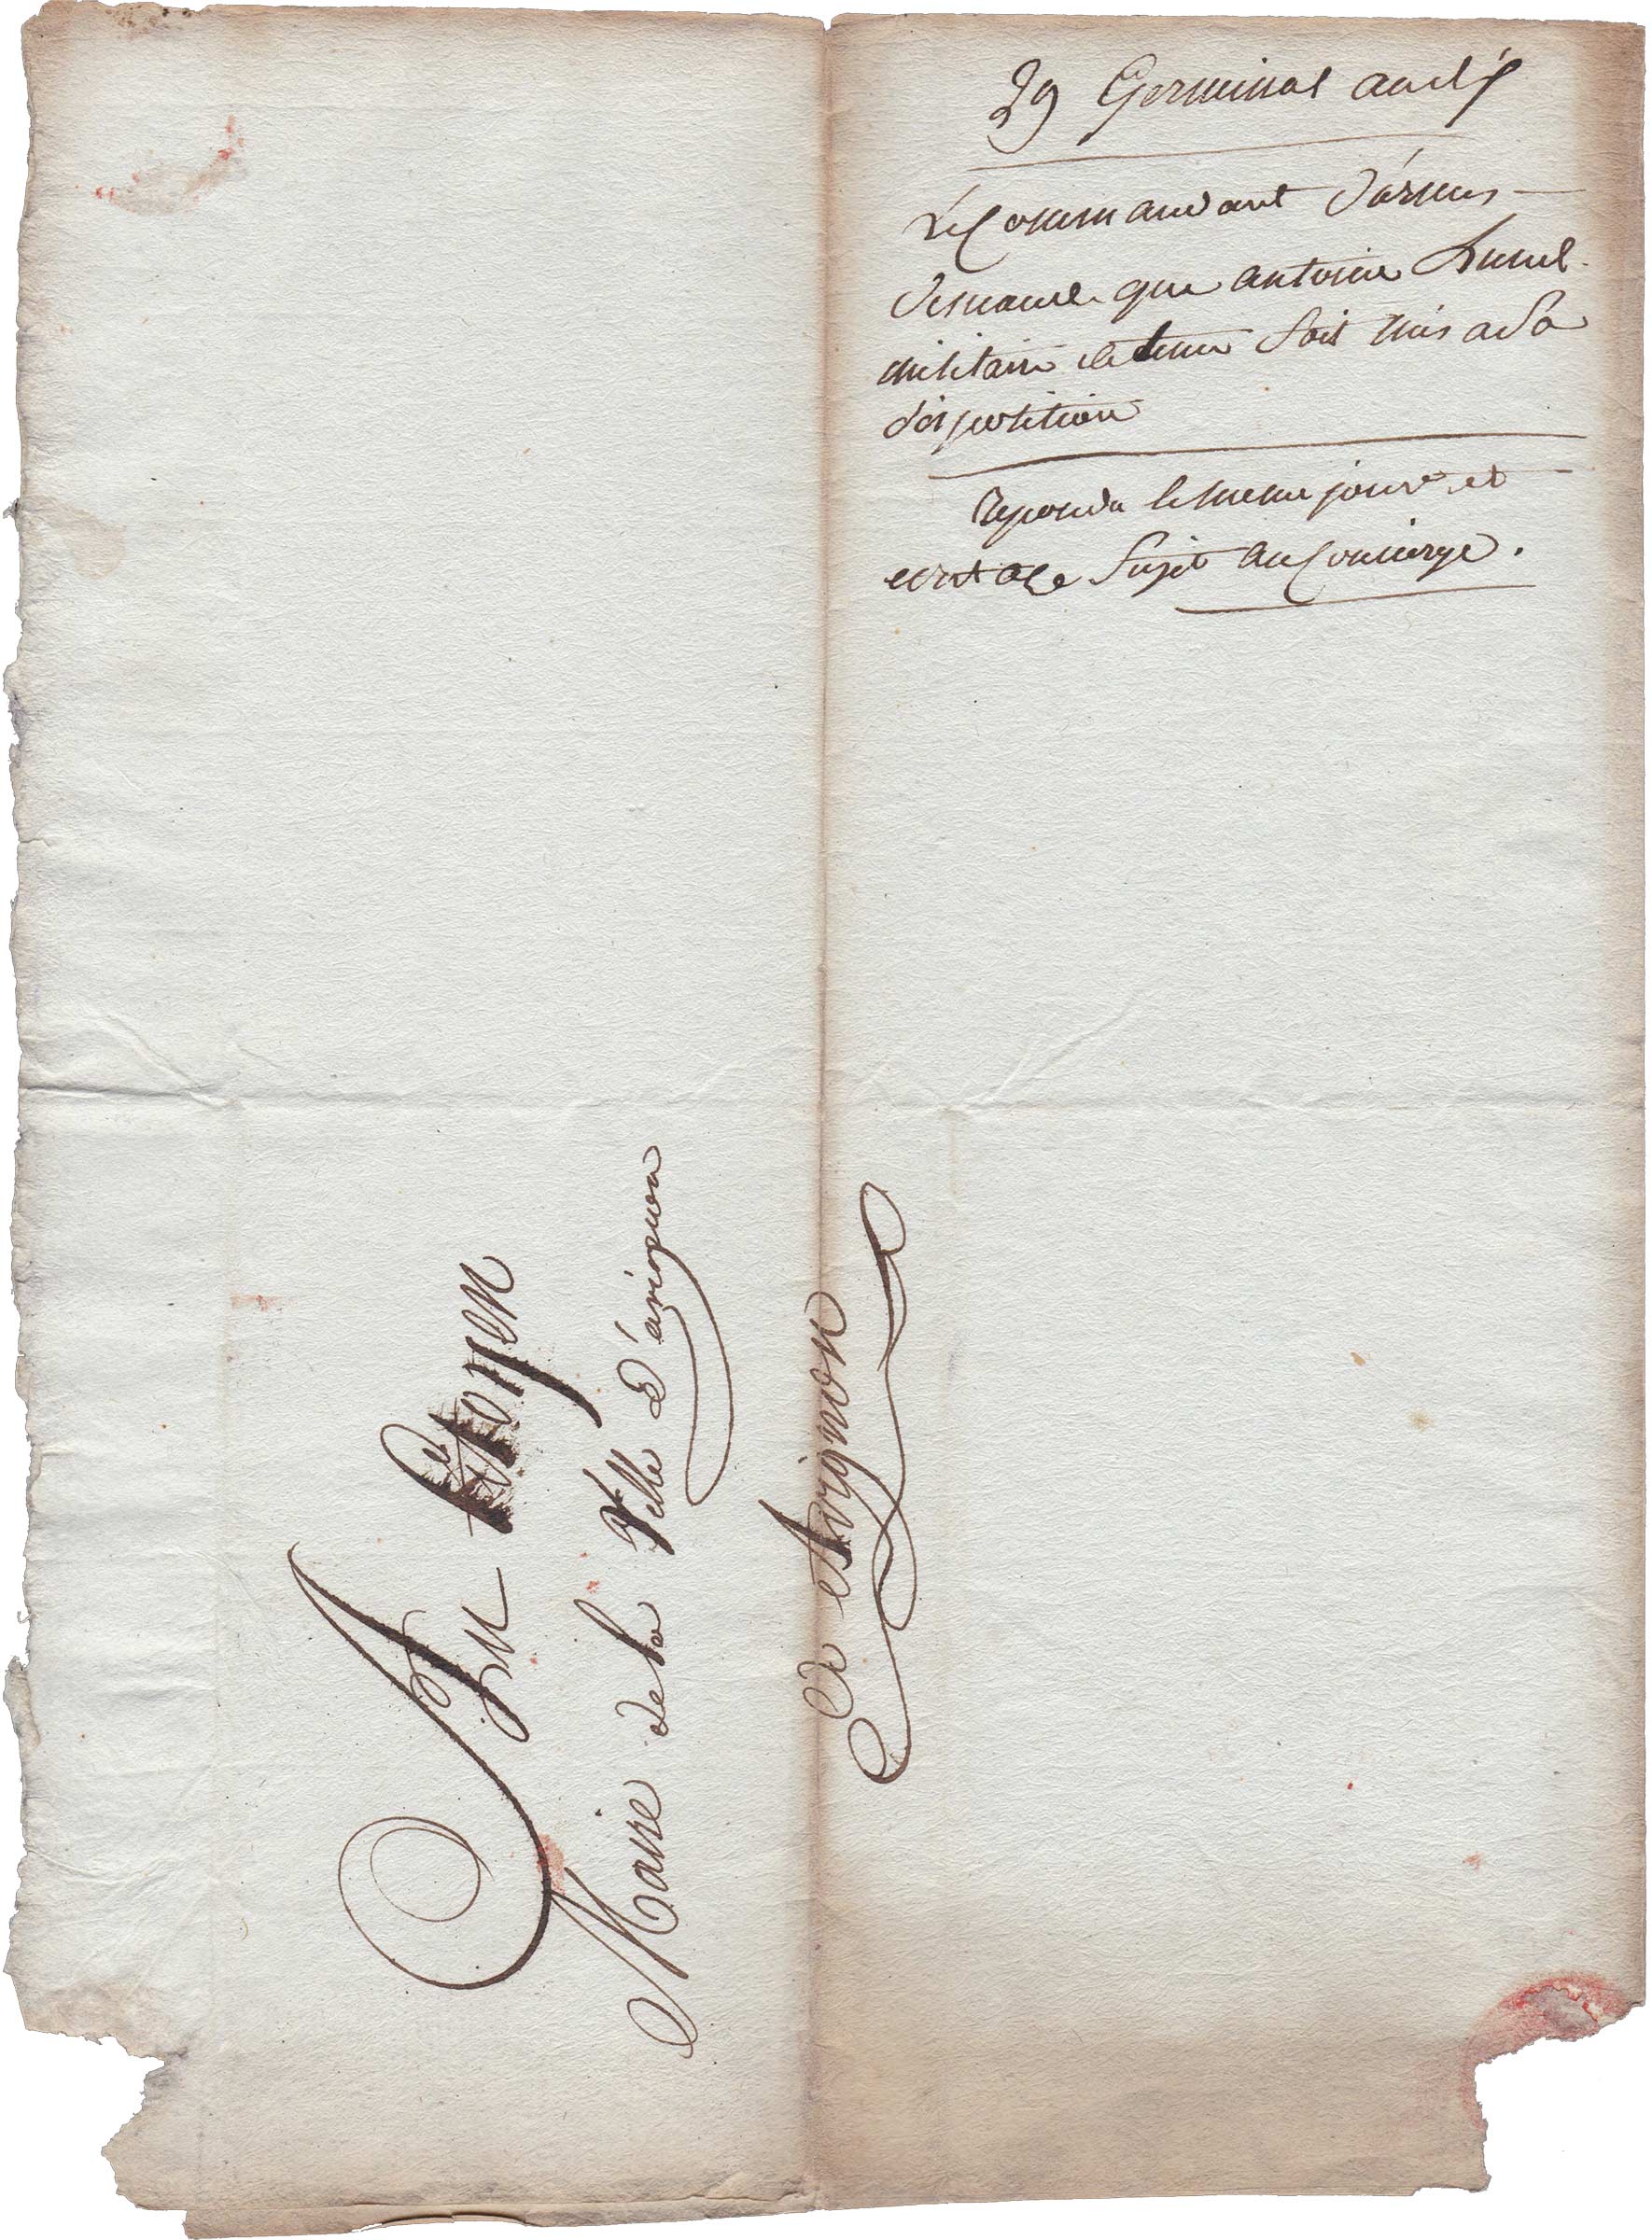 29 Germinal an
Le Commandant d'armes
demande que antoine
militaire detenu soit mis a sa
disposition
Repondu le meme jour et
ecrit a ce sujet au Concierge.
Au Citoyen
Maire de la Ville d'avignon
a Avignon